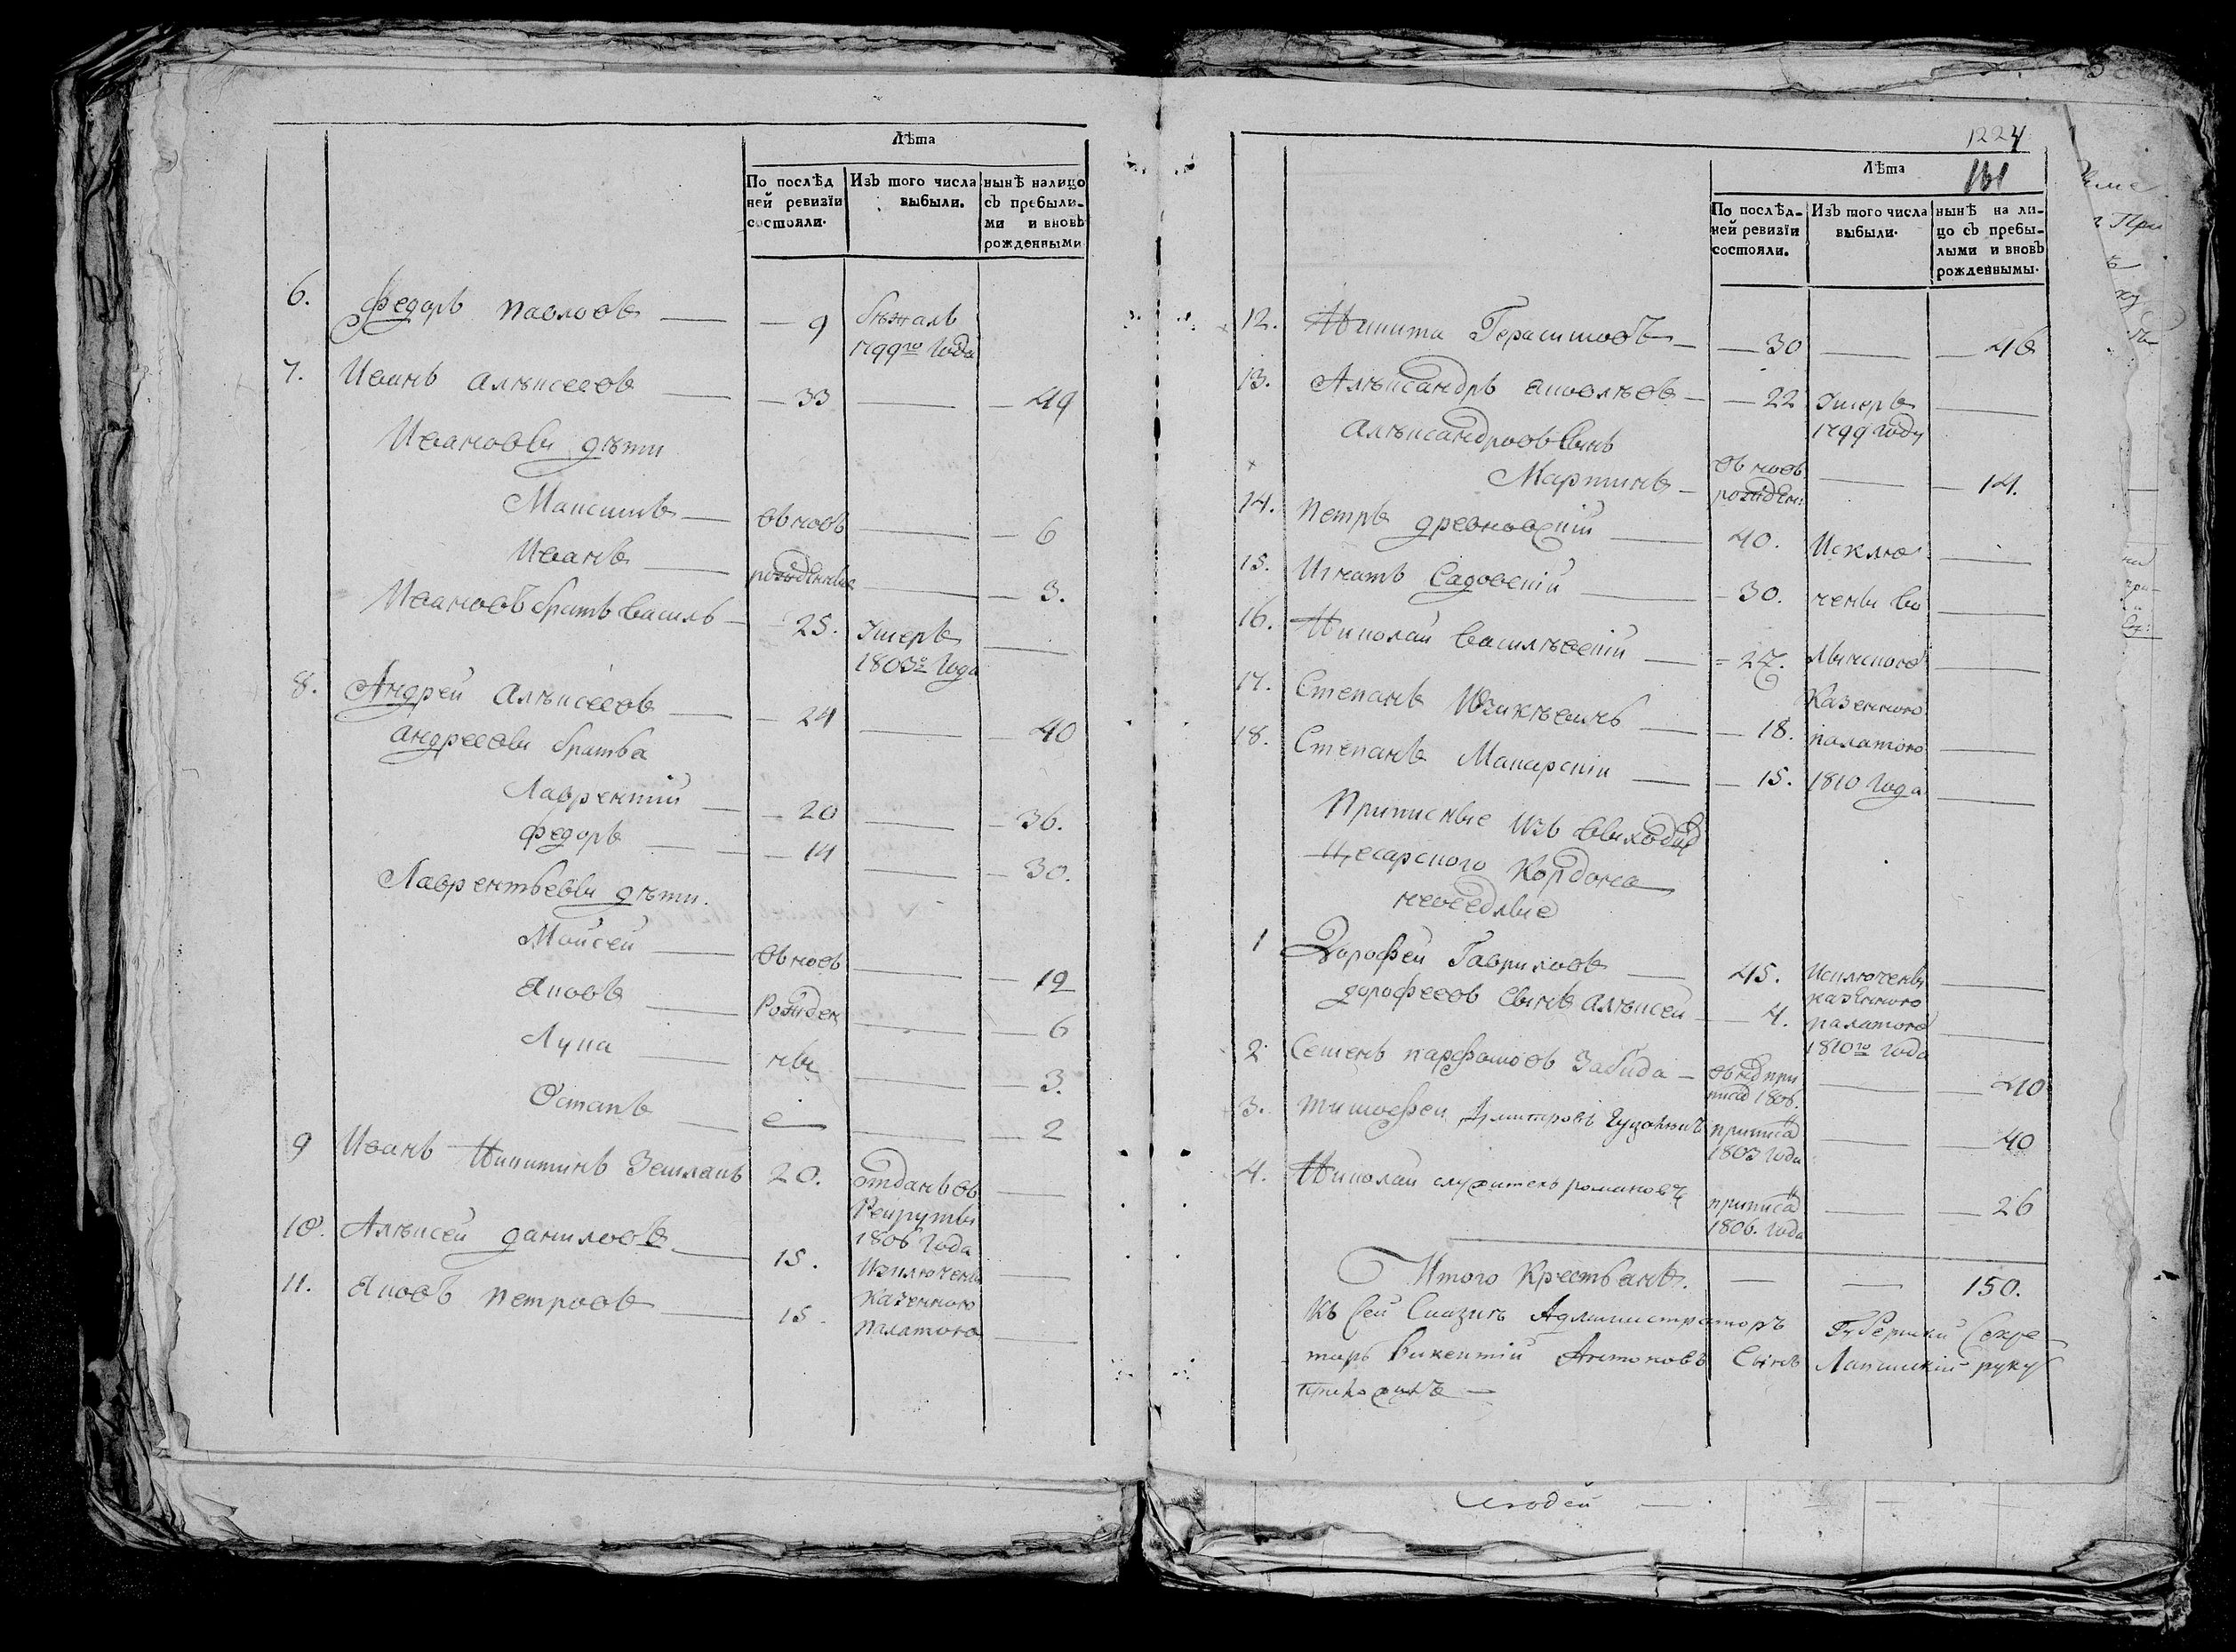 Лѣта
По послѣд Изъ того числа нынѣ налицо
ней ревизїи выбыли. съ пребыли-
состояли. ми и вновь
рожденными
6. Федоръ Павловъ — 9 бѣжалъ
1799го Года
7. Иванъ Алѣксеевъ — 33 — 49
Ивановы дѣти
Максимъ — вновь — 6
Иванъ — рожденные — 3.
Ивановъ братъ Василь — 25. Умеръ —
1803го Года
8. Андрей Алѣксеевъ — 24 — 40
Андреевы братья
Лаврентий — 20 — 36.
Федоръ — 14 — 30.
Лаврентьевы дѣти.
Мойсей — вновь — 12
Яковъ — рожден — 6
Лука — ны — 3.
Остапъ — е — 2
9 Иванъ Никитинъ 20. отданъ въ —
Рекруты
1806 Года
10. Алѣксей Даниловъ — 15. Изключены —
11. Яковъ Петровъ — 15. казенною
палатою —
1224
161
Лѣта
По послѣд- Изъ того числа нынѣ на ли-
ней ревизїи выбыли. цо съ пребы-
состояли. лыми и вновь
рожденнымы.
12. Никита Герасимовъ — 30 — 46
13. Алѣксандръ Яковлѣвъ — 22 Умеръ —
1799 Году
Алѣксандровъ Сынъ
Мартинъ — вновь рожден — 14.
14. Петръ Древновский — 40. Исклю —
15. Игнатъ Садовский — 30. чены Во —
16. Николай Василѣвский — 27. Лынскою —
Казенною
17. Степанъ — 18. палатою —
18. Степанъ Макарский — 15. 1810 Года —
Приписные изъ Выходцо
Цесарского Кордона
1 Дорофей Гавриловъ — 45. Исключены —
казенною
Дорофеевъ Сынъ Алѣксей — 4. палатою —
1810го Года
2 Семенъ Парфомовъ Забида — 40
1806.
3. Тимофей Дмитровъ приписа — 40
1803 Года
4. Николай служитель романовъ приписа — 26
1806. Года
Итого Крестьянъ. — — 150.
Къ Сей Сказкѣ Администраторъ Губернский Секре-
таръ Викентий Антоновъ Сынъ руку
приложилъ —